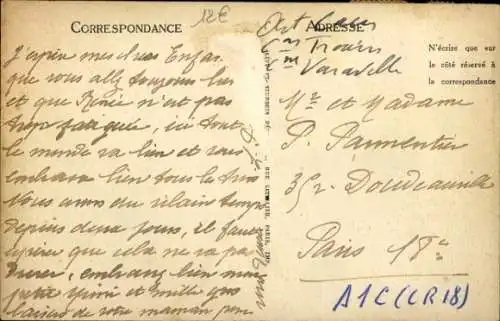 CORRESPONDANCE
12€
J'espère mes chers Enfants
que vous allez toujours bien
et que Renée n'est pas
trop fatiguée, ici tout
le monde va bien et vous
embrasse bien tous les trois
nous avons du vilain temps
depuis deux jours, il faut
espérer que cela ne va pas
durer, embrassez bien mon
petit et mille gros
baisers de votre maman pour
ADRESSE
N'écrire que sur
le côté réservé à
la correspondance
Varaville
Mr et Madame
P. Parmentier
35r. Doudeauville
Paris 18e
A1C (CR18)